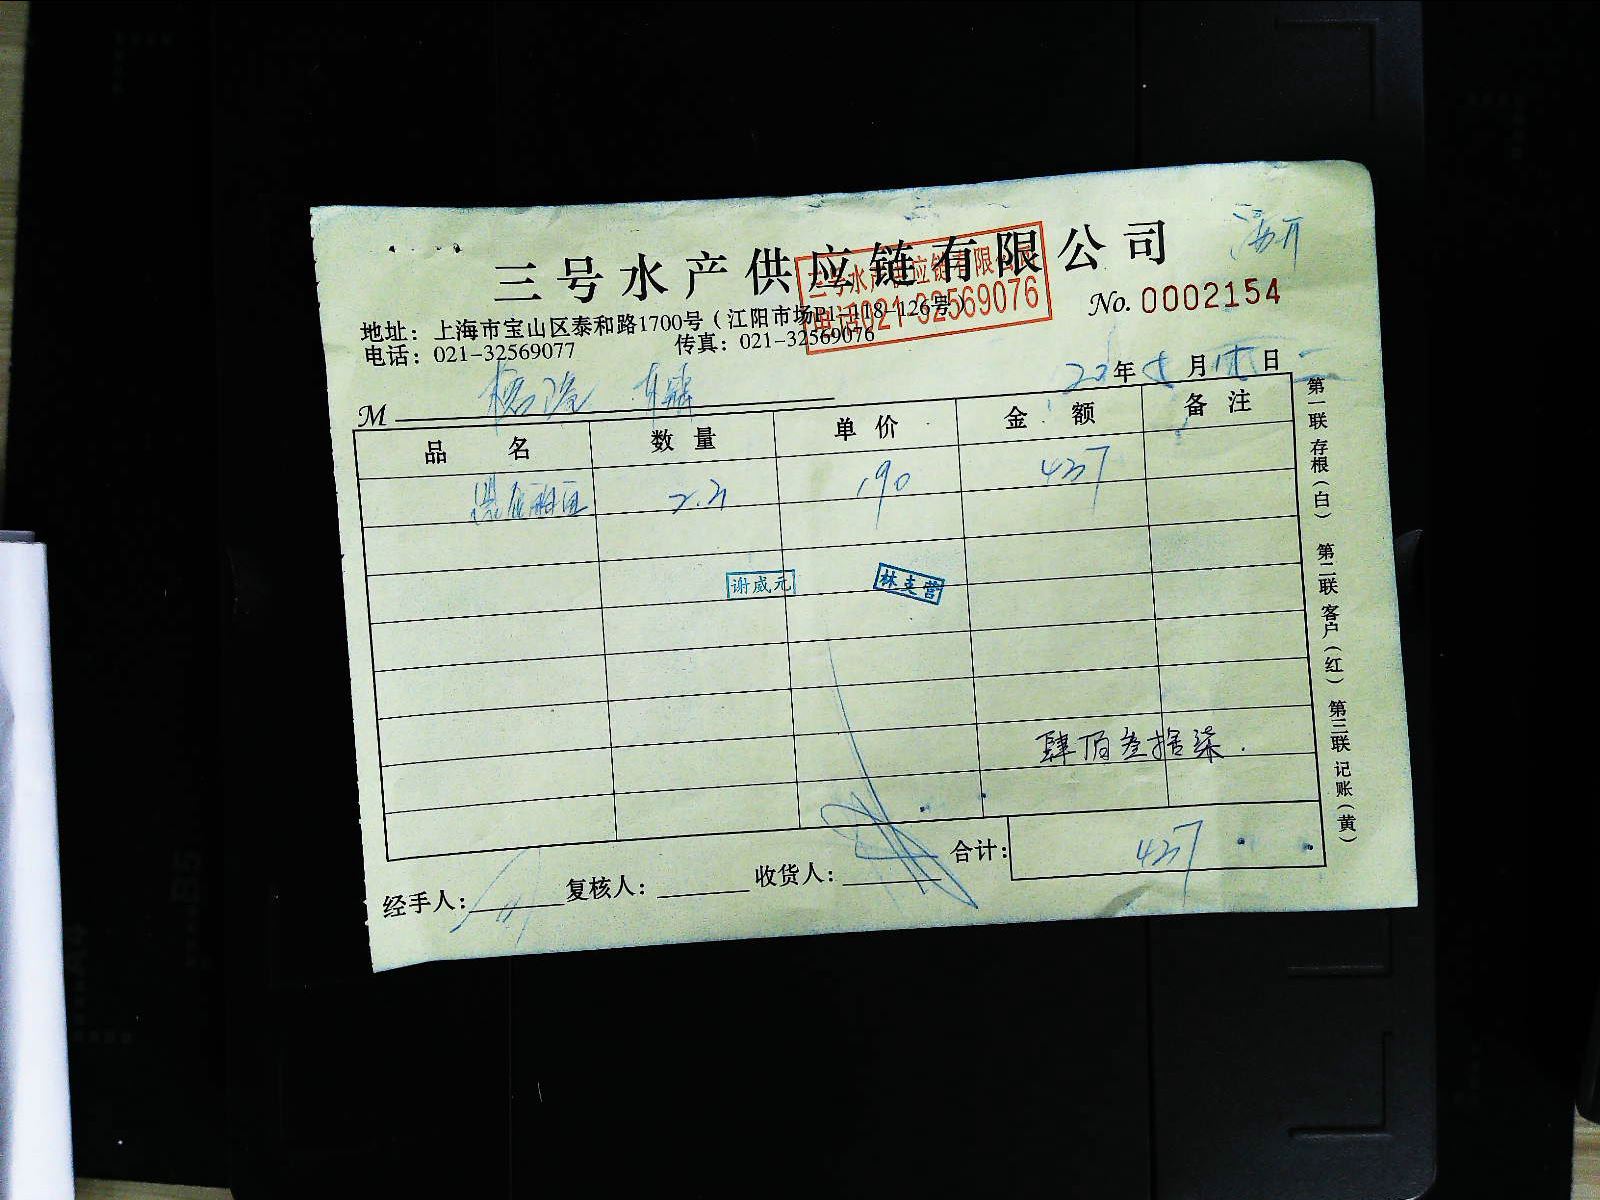 三号水产供应链有限公司
三号水产供应链有限公司
电话021-32569076
No. 0002154
地址：上海市宝山区泰和路1700号（江阳市场P1-118-126号）
电话：021-32569077 传真：021-32569076
年 月 日
M
品名 数量 单价 金额 备注
190 437
谢威元 林支营
肆佰叁拾柒
合计：437
经手人： 复核人： 收货人：
第一联 存根（白） 第二联 客户（红） 第三联 记账（黄）